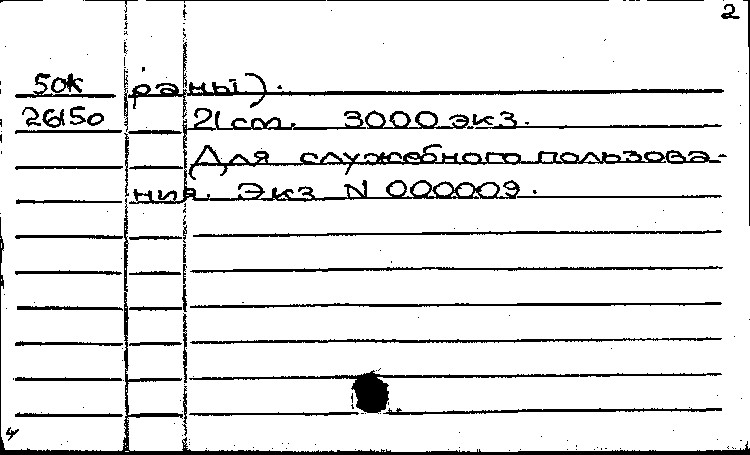 2
50к раны).
26150 21 cm. 3000 экз.
Для служебного пользова-
ния. Экз N 000009.
4